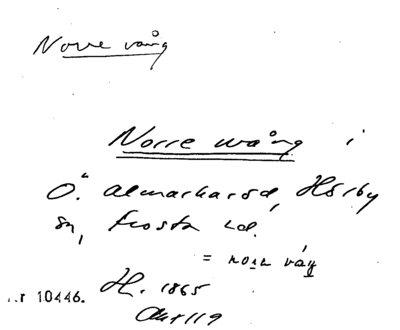 Norre vång
Norre wång i
Ö. Almarkaröd, Hörby
sn, Frosta hd.
= norr våŋ
nr 10446.
H. 1865
Akt 119